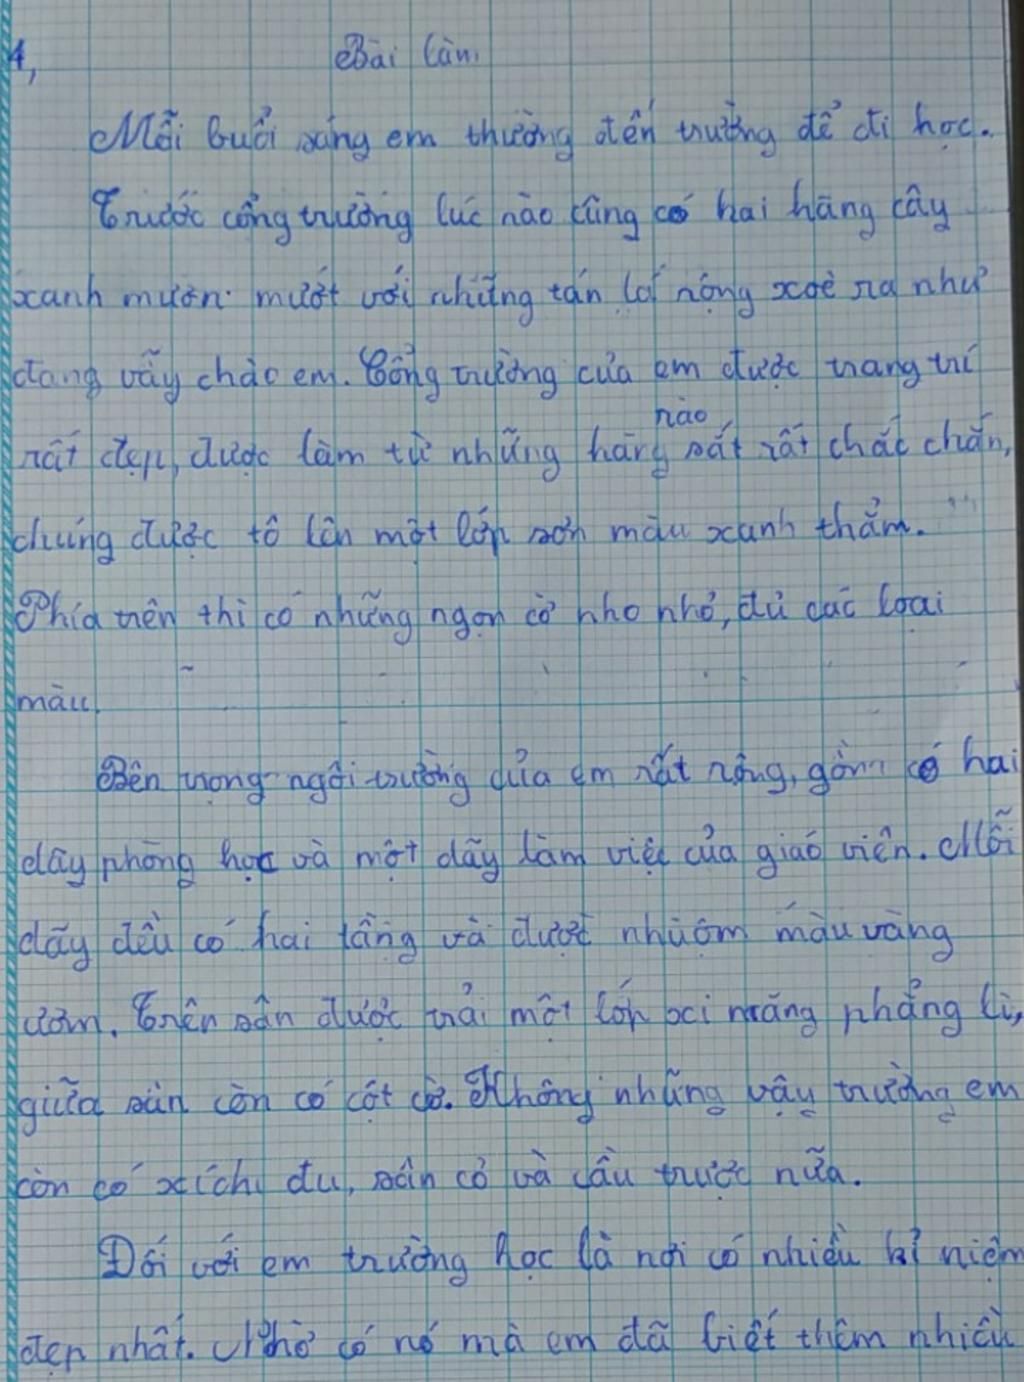 4,
Bài làm.
Mỗi buổi sáng em thường đến trường để đi học.
Trước cổng trường lúc nào cũng có hai hàng cây
xanh mườn mượt với những tán lá rộng xoè ra như
đang vẫy chào em. Cổng trường của em được trang trí
rào
rất đẹp, được làm từ những hàng sắt rất chắc chắn,
chúng được tô lên một lớp sơn màu xanh thẳm.
Phía trên thì có những ngọn cờ nho nhỏ, đủ các loại
màu.
Bên trong ngôi trường của em rất rộng, gồm có hai
dãy phòng học và một dãy làm việc của giáo viên. Mỗi
dãy đều có hai tầng và được nhuộm màu vàng
ươm. Trên sân được trải một lớp xi măng phẳng lì,
giữa sân còn có cột cờ. Không những vậy trường em
còn có xích đu, sân cỏ và cầu trượt nữa.
Đối với em trường học là nơi có nhiều kỉ niệm
đẹp nhất. Nhờ có nó mà em đã biết thêm nhiều